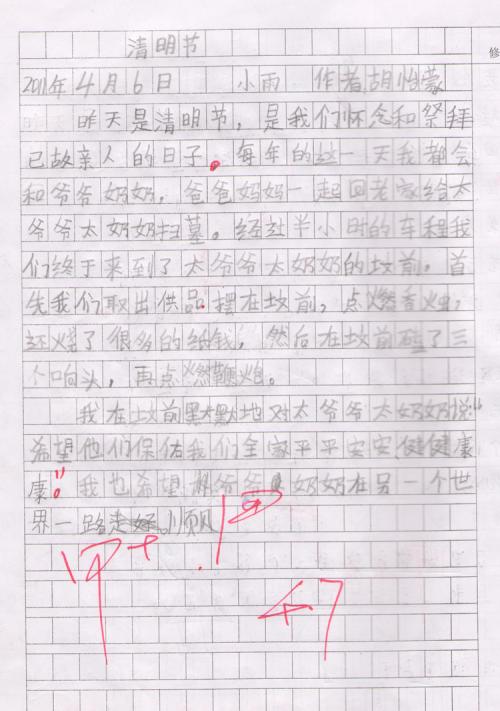 清明节
修
2011年4月6日 小雨 作者胡怡蒙
昨天是清明节，是我们怀念和祭拜
已故亲人的日子。每年的这一天我都会
和爷爷奶奶，爸爸妈妈一起回老家给太
爷爷太奶奶扫墓。经过半小时的车程我
们终于来到了太爷爷太奶奶的坟前。首
先我们取出供品摆在坟前，点燃香火，
还烧了很多的纸钱，然后在坟前磕了三
个响头，再点燃鞭炮。
我在坟前默默地对太爷爷太奶奶说“
希望他们保佑我们全家平平安安、健健康
康”。我也希望 爷爷 奶奶在另一个世
界一路走好。顺风
甲+
4.7